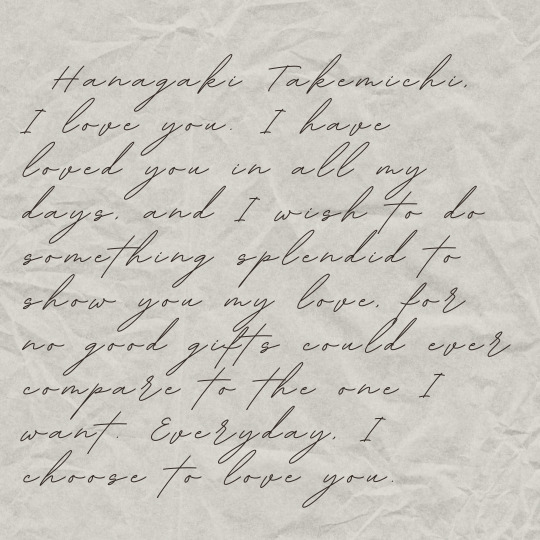 Hanagaki Takemichi,
I love you. I have
loved you in all my
days, and I wish to do
something splendid to
show you my love, for
no good gifts could ever
compare to the one I
want. Everyday, I
choose to love you.